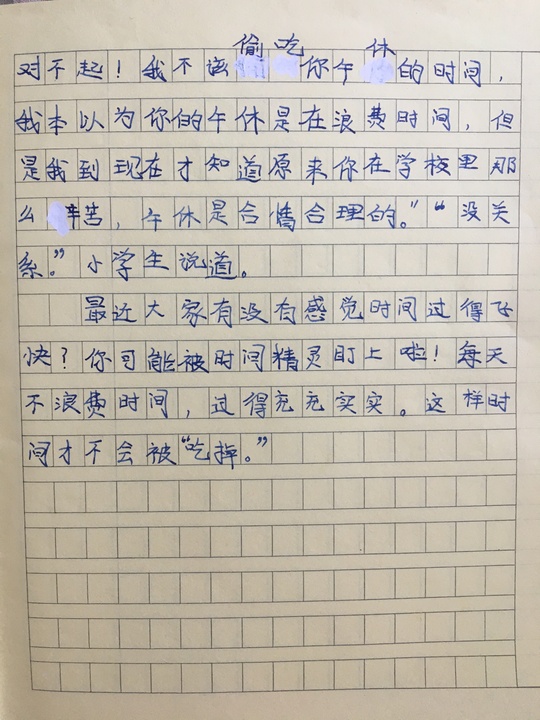 偷吃 休
对不起！我不该你午的时间，
我本以为你的午休是在浪费时间，但
是我到现在才知道原来你在学校里那
么辛苦，午休是合情合理的。”“没关
系。”小学生说道。
最近大家有没有感觉时间过得飞
快？你可能被时间精灵盯上啦！每天
不浪费时间，过得充充实实。这样时
间才不会被“吃掉。”